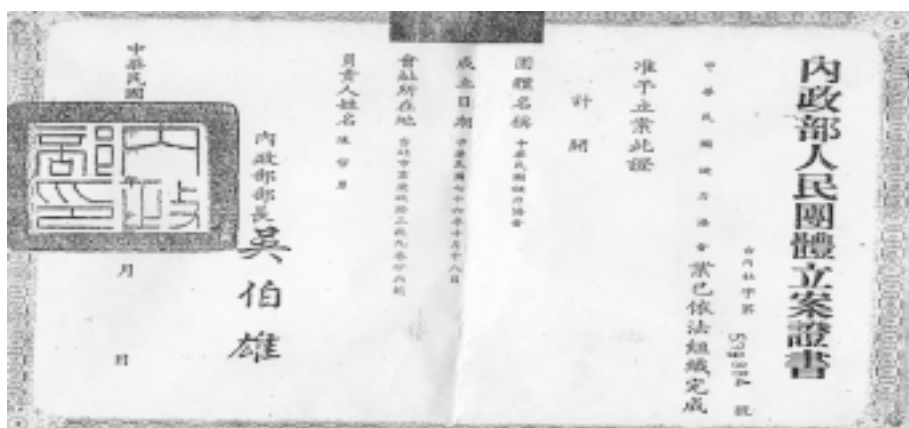 內政部人民團體立案證書
台內社字第 號
中華民國健力協會 業已依法組織完成
准予立案此證
計開
團體名稱 中華民國健力協會
成立日期 中華民國七十六年十月十八日
會址所在地
負責人姓名
內政部部長 吳伯雄
中華民國 年 月 日
內政部印